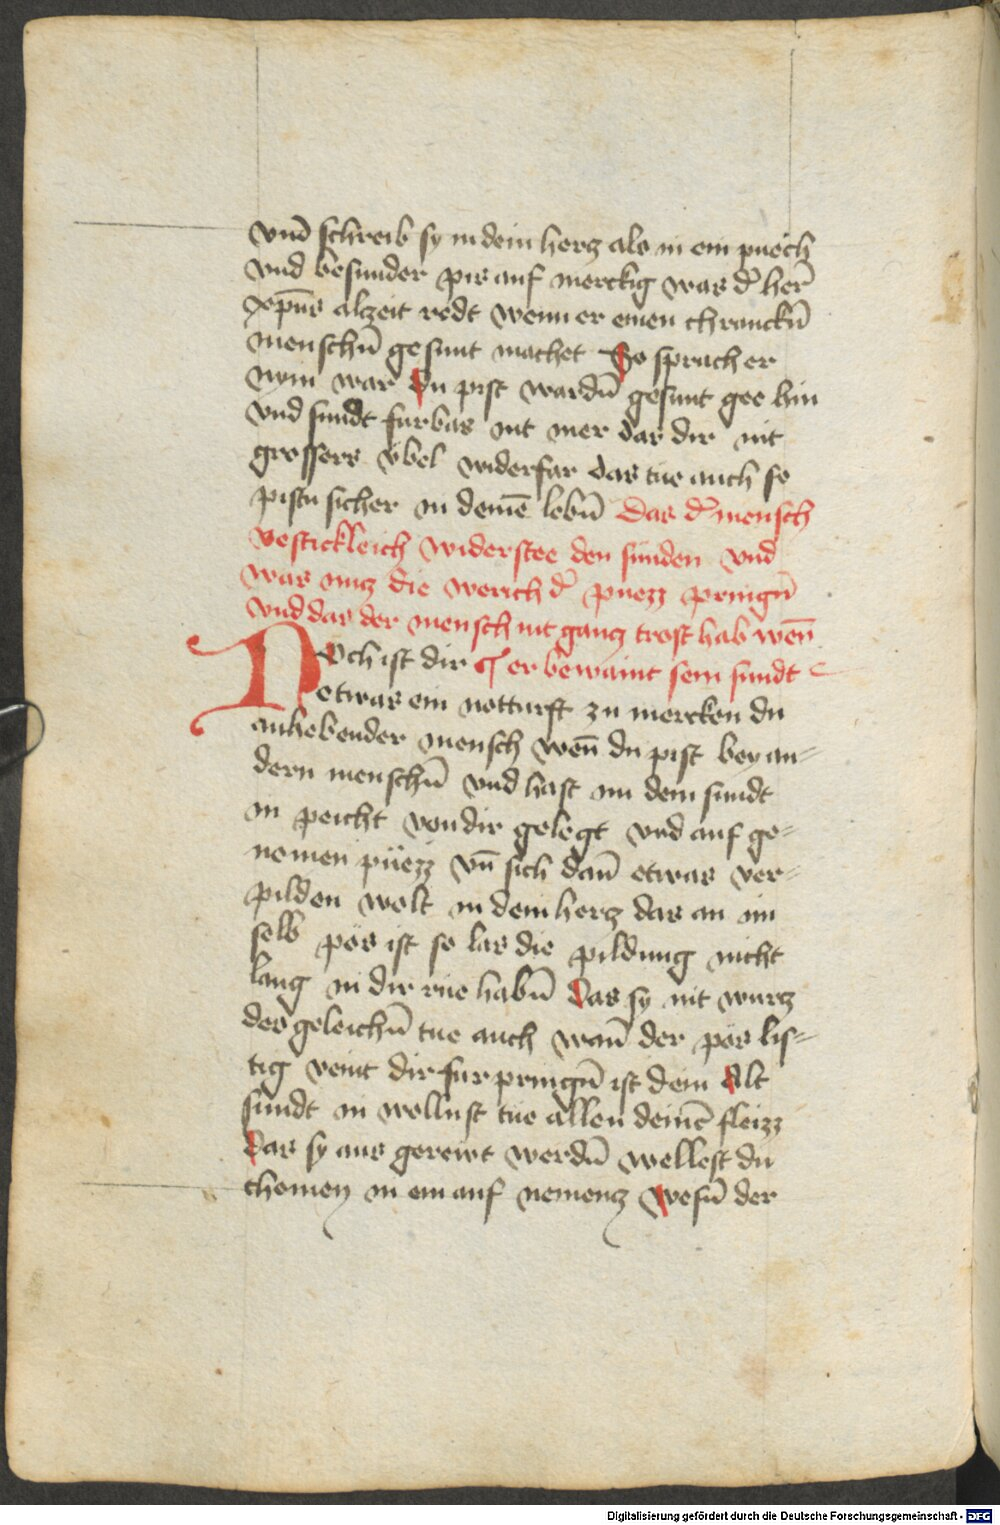 vnd schreib sy in dein hertz als in ein puech
vnd besunder pis auf merckig was d͛ her̄
xp̄us alzeit redt wenn er einen chranckn̄
menschn̄ gesunt machet So sprach er
nym war du pist wardn̄ gesunt gee hin
vnd sundt furbas nit mer das dir nit
grossers vbel widerfar das tue auch so
pistu sicher in deinē lebn̄ Das d͛ mensch
vestickleich widerstee den sünden vnd
was nutz die werich d͛ puezz pringn̄
vnd das der mensch nit gantz trost hab wen̄
Noch ist dir ¶ er bewaint sein sundt
etwas ein notturft zu mercken du
anhebender mensch wen̄ du pist bey an-
dern menschn̄ vnd hast nu dein sundt
in peicht von dir gelegt vnd auf ge-
nomen püezz vn̄ sich dan̄ etwas ver-
pilden wolt in dein hertz das an im
selb pös ist so las die pildung nicht
lang in dir rue habn̄ das sy nit wurtz
des geleichn̄ tue auch wan̄ der pös lis-
tig veint dir fur pringn̄ ist dein alt
sundt in wollust tue allen deinē fleizz
das sy aus gerewt werdn̄ wellest du
chomen in ein auf nementz wesn̄ der
Digitalisierung gefördert durch die Deutsche Forschungsgemeinschaft - DFG